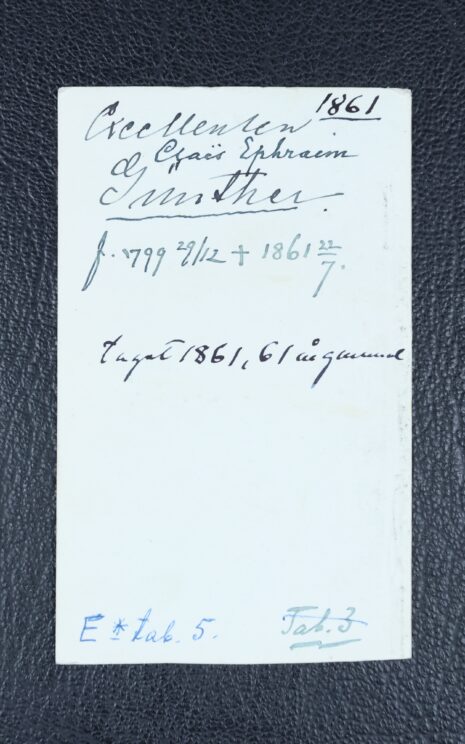 1861
Excellensen
Claës Ephraim
Günther.
f. 1799 29/12 + 1861 22/7.
taget 1861, 61 år gammal
E * tab. 5.
Tab. 3